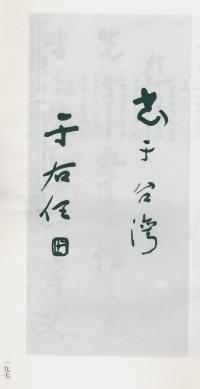 书于台湾
于右任
一九七